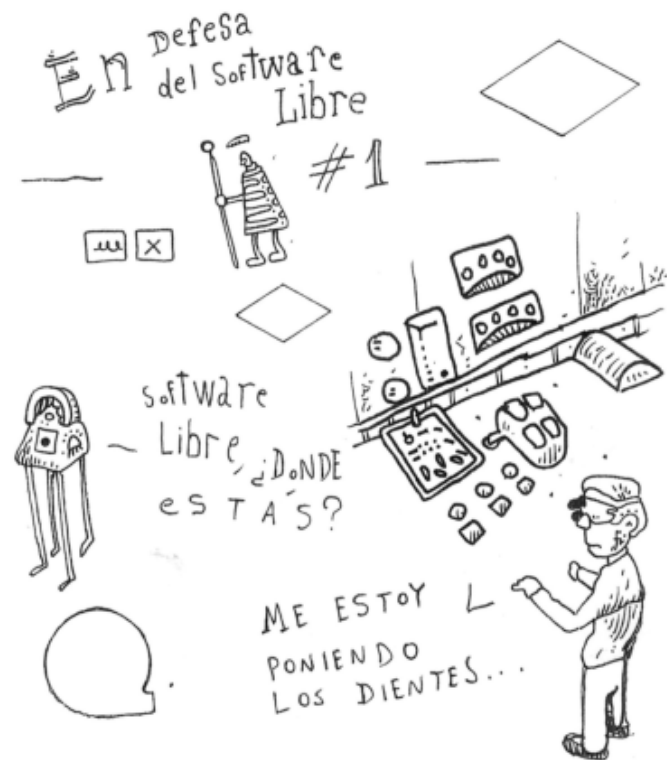 En Defesa
del Software
Libre
#1
X
Software
Libre, ¿DONDE
eSTÁS?
ME ESTOY
PONIENDO
LOS DIENTES...